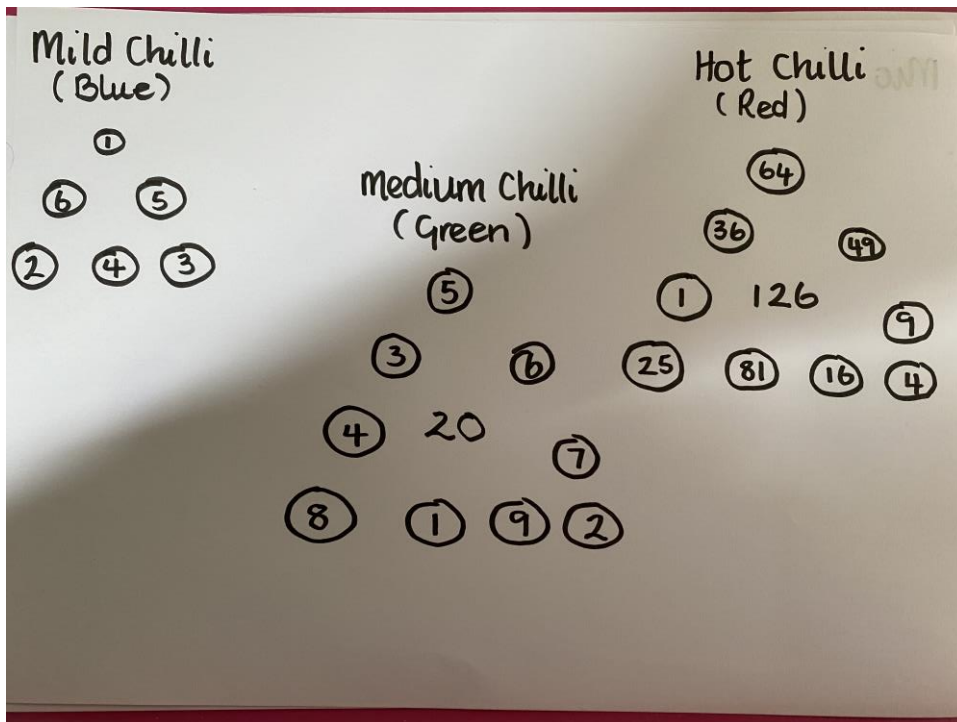 Mild Chilli
(Blue)
1
6 5
2 4 3
Medium Chilli
(Green)
5
3 6
4 20
7
8 1 9 2
Hot Chilli
(Red)
64
36 49
1 126
9
25 81 16 4